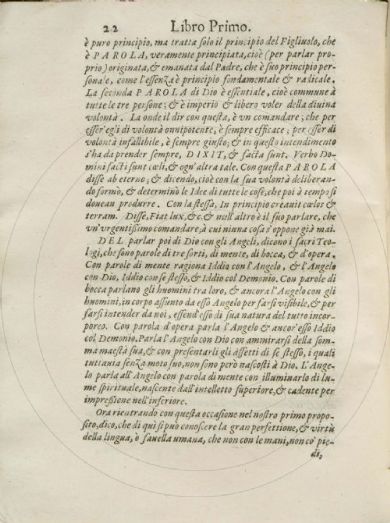 22 Libro Primo.
è puro principio, ma tratta solo il principio del Figliuolo, che
è PAROLA, veramente principiata, cioè (per parlar pro-
prio) originata, & emanata dal Padre, che è suo principio per-
sonale, come l'essenza è principio fondamentale & radicale.
La seconda PAROLA di Dio è essentiale, cioè commune à
tutte le tre persone; & è imperio & libero voler della diuina
volontà. La onde il dir con questa, è vn comandare; che per
esser'egli di volontà onnipotente, è sempre efficace; per esser di
volontà infallibile, è sempre giusto; & in questo intendimento
s'hà da prender sempre, DIXIT, & facta sunt. Verbo Do-
mini facti sunt cœli, & ogn'altra tale. Con questa PAROLA
disse ab eterno; & dicendo, cioè con la sua volontà deliberan-
do formò, & determinò le Idee di tutte le cose, che poi à tempo si
donean produrre. Con la stessa, In principio creauit cœlos &
terram. Disse, Fiat lux, &c. & null'altro è il suo parlare, che
vn'vrgentissimo comandare, à cui niuna cosa s'oppone già mai.
DEL parlar poi di Dio con gli Angeli, dicono i sacri Teo-
logi, che sono parole di tre sorti, di mente, di bocca, & d'opera.
Con parole di mente ragiona Iddio con l'Angelo, & l'Angelo
con Dio, Iddio con se stesso, & Iddio col Demonio. Con parole di
bocca parlano gli huomini tra loro, & ancora l'Angelo con gli
huomini, in corpo assunto da esso Angelo per farsi visibile, & per
farsi intender da noi, essend'esso di sua natura del tutto incor-
poreo. Con parola d'opera parla l'Angelo & ancor'esso Iddio
col Demonio. Parla l'Angelo con Dio con ammirarsi della som-
ma maestà sua, & con presentarli gli affetti di se stesso, i quali
tuttauia senza moto suo, non sono però nascosti à Dio. L'Ange-
lo parla all'Angelo con parola di mente con illuminarlo di lu-
me spirituale, nascente dall'intelletto superiore, & cadente per
impressione nell'inferiore.
Ora rientrando con questa occasione nel nostro primo propo-
sito, dico, che di quì si può conoscere la gran perfettione, & virtù
della lingua, ò fauella umana, che non con le mani, non co' pie-
di,